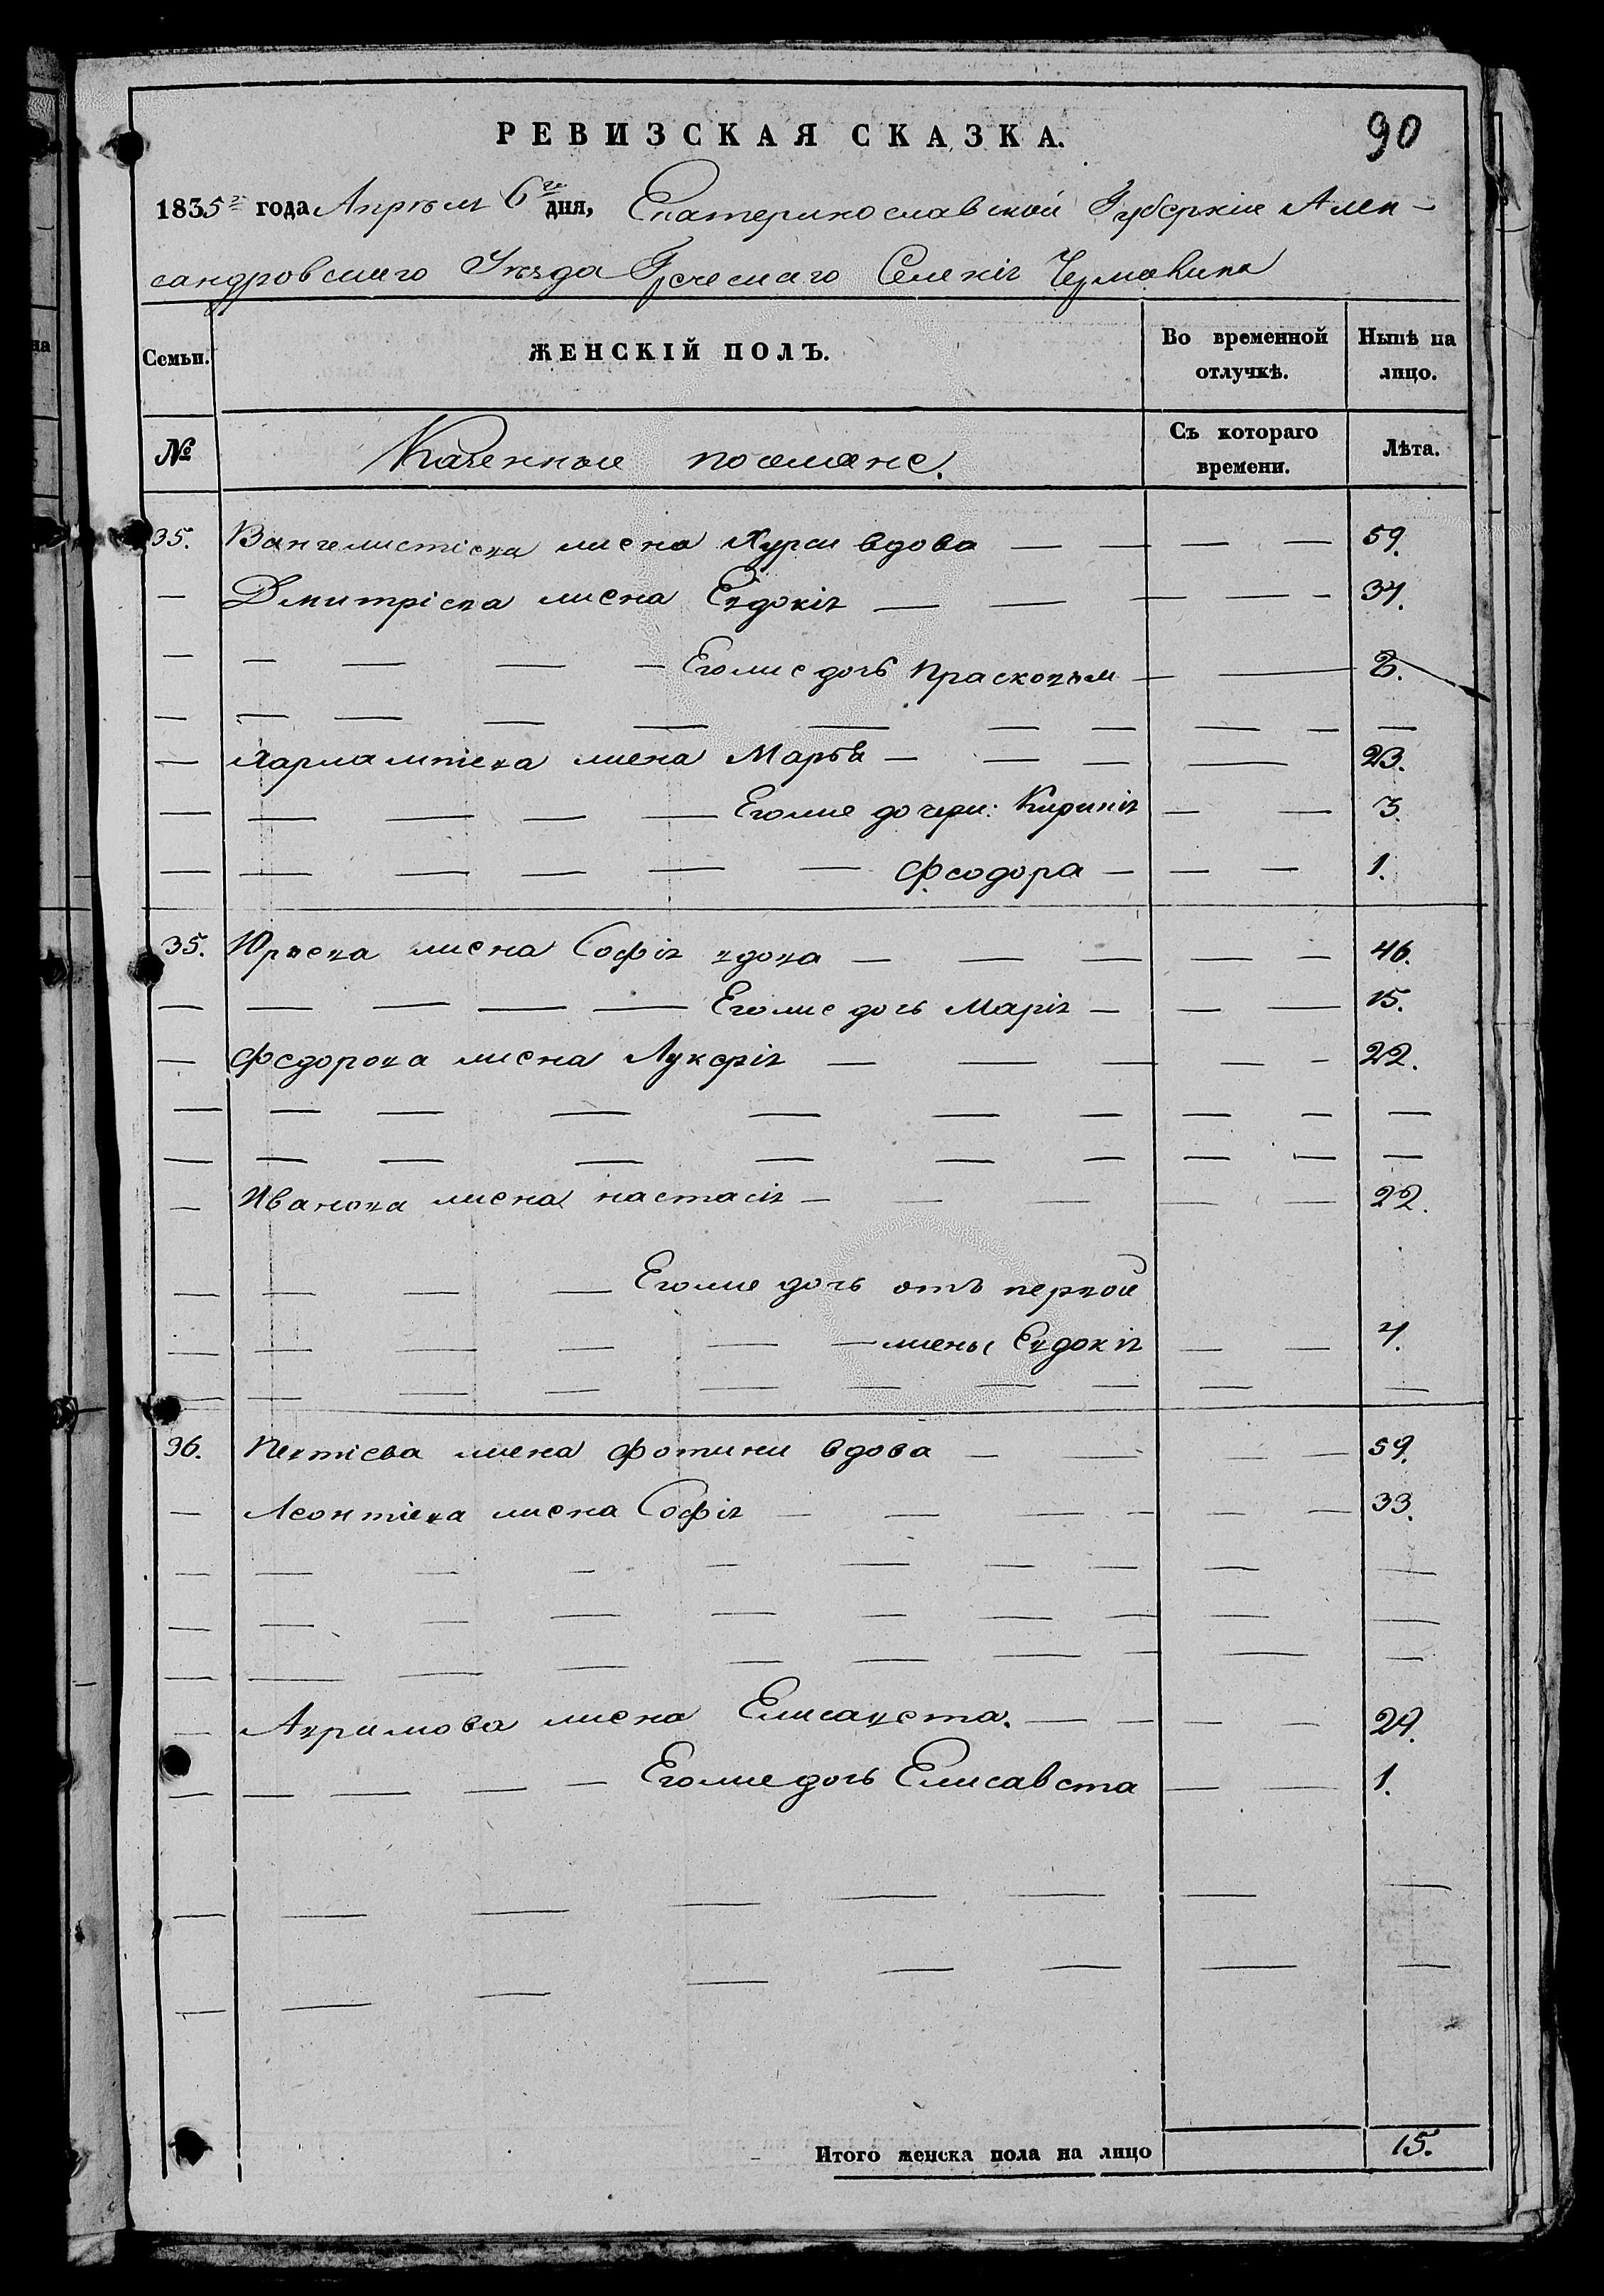 РЕВИЗСКАЯ СКАЗКА. 90
1835го года Апреля 6го дня, Екатеринославской Губернiи Алек-
сандровскаго Уезда Греческаго Селенiя Чермалика
Семьи. ЖЕНСКIЙ ПОЛЪ. Во временной отлучкѣ. Нынѣ на лицо.
№ Казенные поселяне. Съ котораго времени. Лѣта.
35. Вангелистiева жена Хурси вдова — — — — 59.
— Дмитрiева жена Евдокiя — — — — — 37.
— — — — — Егоже дочь Прасковья — — 2.
— — — — — — — — — — —
— Харлампiева жена Марья — — — — 23.
— — — — — Егоже дочери: Кирикiя — — 3.
— — — — — — Феодора — — — 1.
35. Юрьева жена Софiя вдова — — — — — 46.
— — — — — Егоже дочь Марiя — — — 15.
— Федорова жена Лукерiя — — — — — 22.
— — — — — — — — — —
— — — — — — — — — —
— Иванова жена Настасiя — — — — — 22.
— — — — Егоже дочь отъ первой
— — — — — — жены Евдокiя — — 4.
— — — — — — — — — —
36. Пантiева жена Фотини вдова — — — — 59.
— Леонтiева жена Софiя — — — — — — 33.
— — — — — — — — — —
— — — — — — — — — —
— — — — — — — — — —
— Аврамова жена Елисавета. — — — — 29.
— — — — — Егоже дочь Елисавета — — 1.
— — — — — — — — —
— — — — — — — — —
Итого женска пола на лицо 15.